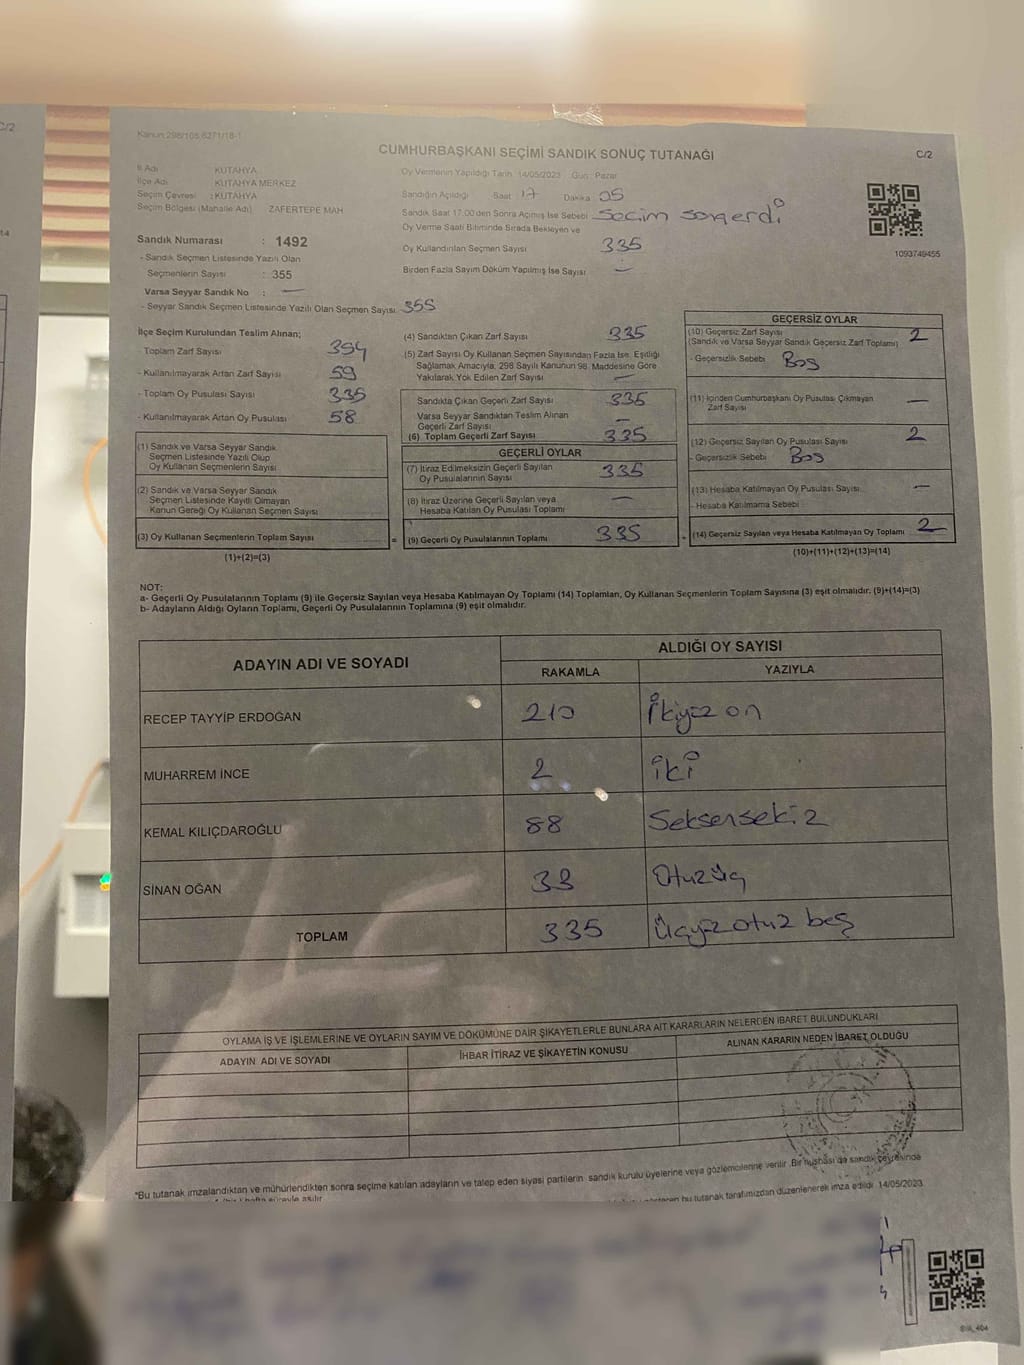 C/2
14
Kanun:298/105,6271/18-1
CUMHURBAŞKANI SEÇİMİ SANDIK SONUÇ TUTANAĞI
C/2
İl Adı : KÜTAHYA
İlçe Adı : KÜTAHYA MERKEZ
Seçim Çevresi : KÜTAHYA
Seçim Bölgesi (Mahalle Adı) ZAFERTEPE MAH
Sandık Numarası : 1492
- Sandık Seçmen Listesinde Yazılı Olan
Seçmenlerin Sayısı : 355
Varsa Seyyar Sandık No : —
- Seyyar Sandık Seçmen Listesinde Yazılı Olan Seçmen Sayısı 355
Oy Vermenin Yapıldığı Tarih 14/05/2023 Gün: Pazar
Sandığın Açıldığı Saat 17 Dakika 05
Sandık Saat 17.00'den Sonra Açılmış İse Sebebi Secim songerdi
Oy Verme Saati Bitiminde Sırada Bekleyen ve
Oy Kullandırılan Seçmen Sayısı 335
Birden Fazla Sayım Döküm Yapılmış İse Sayısı —
1093749455
İlçe Seçim Kurulundan Teslim Alınan;
- Toplam Zarf Sayısı 394
- Kullanılmayarak Artan Zarf Sayısı 59
- Toplam Oy Pusulası Sayısı 335
- Kullanılmayarak Artan Oy Pusulası 58
(1) Sandık ve Varsa Seyyar Sandık
Seçmen Listesinde Yazılı Olup
Oy Kullanan Seçmenlerin Sayısı
(2) Sandık ve Varsa Seyyar Sandık
Seçmen Listesinde Kayıtlı Olmayan
Kanun Gereği Oy Kullanan Seçmen Sayısı
(3) Oy Kullanan Seçmenlerin Toplam Sayısı
(1)+(2)=(3)
(4) Sandıktan Çıkan Zarf Sayısı 335
(5) Zarf Sayısı Oy Kullanan Seçmen Sayısından Fazla İse, Eşitliği
Sağlamak Amacıyla, 298 Sayılı Kanunun 98. Maddesine Göre
Yakılarak Yok Edilen Zarf Sayısı —
Sandıkta Çıkan Geçerli Zarf Sayısı 335
Varsa Seyyar Sandıktan Teslim Alınan
Geçerli Zarf Sayısı —
(6) Toplam Geçerli Zarf Sayısı 335
GEÇERLİ OYLAR
(7) İtiraz Edilmeksizin Geçerli Sayılan
Oy Pusulalarının Sayısı 335
(8) İtiraz Üzerine Geçerli Sayılan veya
Hesaba Katılan Oy Pusulası Toplamı —
= (9) Geçerli Oy Pusulalarının Toplamı 335
GEÇERSİZ OYLAR
(10) Geçersiz Zarf Sayısı 2
(Sandık ve Varsa Seyyar Sandık Geçersiz Zarf Toplamı)
- Geçersizlik Sebebi Boş
(11) İçinden Cumhurbaşkanı Oy Pusulası Çıkmayan
Zarf Sayısı —
(12) Geçersiz Sayılan Oy Pusulası Sayısı 2
- Geçersizlik Sebebi Boş
(13) Hesaba Katılmayan Oy Pusulası Sayısı —
- Hesaba Katılmama Sebebi
(14) Geçersiz Sayılan veya Hesaba Katılmayan Oy Toplamı 2
(10)+(11)+(12)+(13)=(14)
NOT:
a- Geçerli Oy Pusulalarının Toplamı (9) ile Geçersiz Sayılan veya Hesaba Katılmayan Oy Toplamı (14) Toplamları, Oy Kullanan Seçmenlerin Toplam Sayısına (3) eşit olmalıdır. (9)+(14)=(3)
b- Adayların Aldığı Oyların Toplamı, Geçerli Oy Pusulalarının Toplamına (9) eşit olmalıdır.
ADAYIN ADI VE SOYADI
ALDIĞI OY SAYISI
RAKAMLA YAZIYLA
RECEP TAYYİP ERDOĞAN 210 İkiyüz on
MUHARREM İNCE 2 iki
KEMAL KILIÇDAROĞLU 88 Seksensekiz
SİNAN OĞAN 33 Otuzüç
TOPLAM 335 Üçyüz otuz beş
OYLAMA İŞ VE İŞLEMLERİNE VE OYLARIN SAYIM VE DÖKÜMÜNE DAİR ŞİKAYETLERLE BUNLARA AİT KARARLARIN NELERDEN İBARET BULUNDUKLARI
ADAYIN ADI VE SOYADI İHBAR İTİRAZ VE ŞİKAYETİN KONUSU ALINAN KARARIN NEDEN İBARET OLDUĞU
*Bu tutanak imzalandıktan ve mühürlendikten sonra seçime katılan adayların ve talep eden siyasi partilerin sandık kurulu üyelerine veya gözlemcilerine verilir. Bir nüshası da sandık çevresinde
bu tutanak tarafımızdan düzenlenerek imza edildi. 14/05/2023